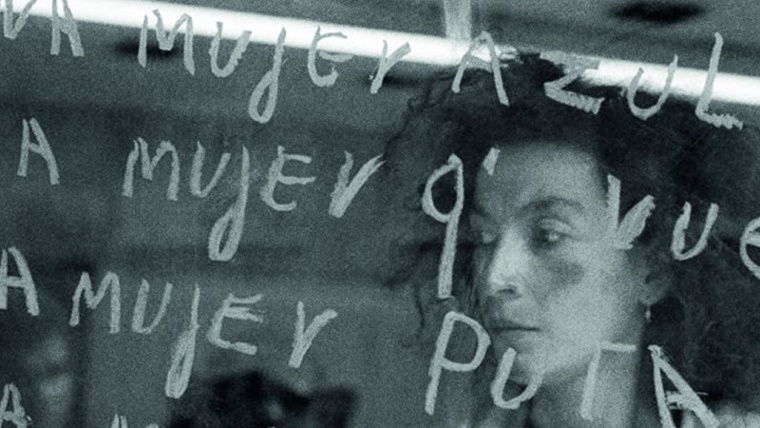 MUJER AZUL
A MUJER q' VUE
A MUJER PUTA
A